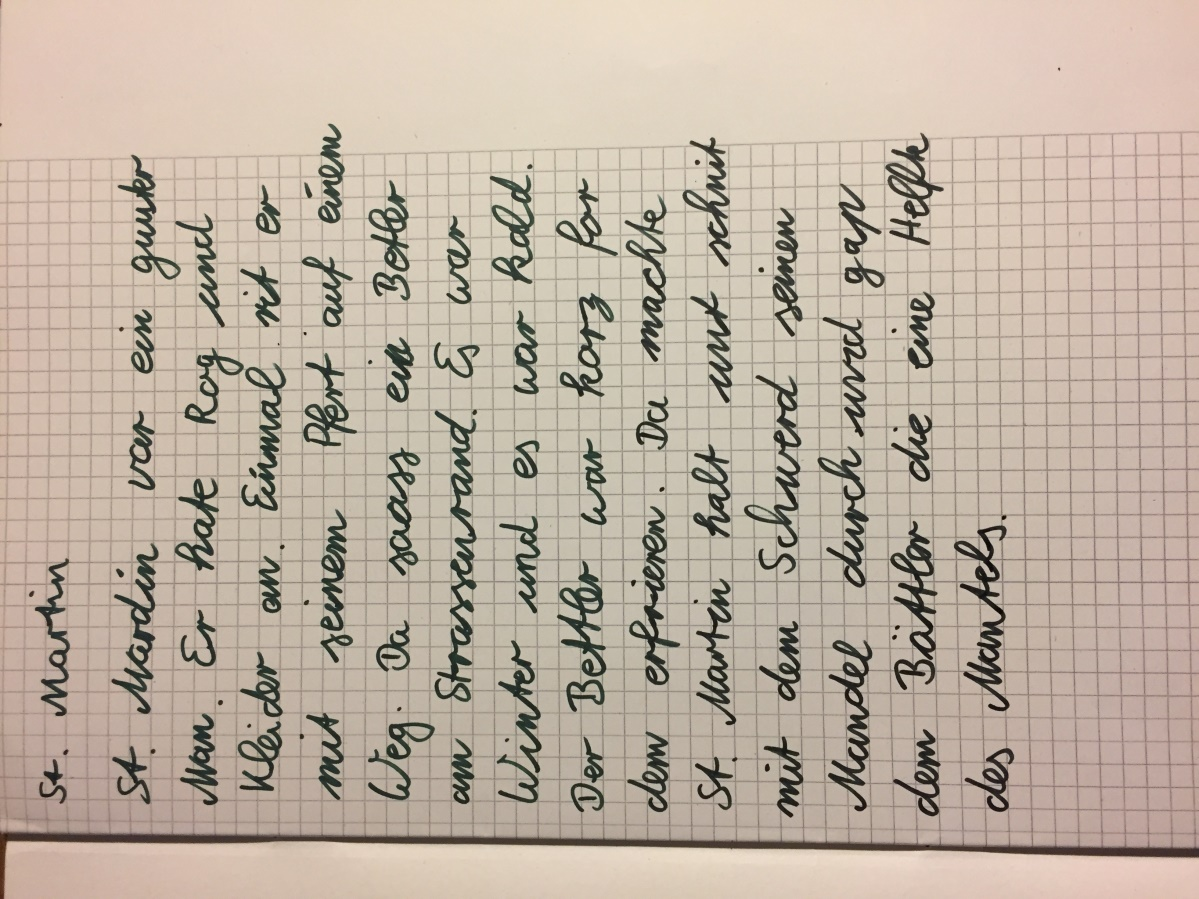 St. Martin
St. Mardin war ein guuter
Man. Er hate Rog und
Kleider an. Einmal rit er
mit seinem Pfert auf einem
Weg. Da saass ein Betler
am Strassenrand. Es war
Winter und es war kald.
Der Bettler war korz for
dem erfrieren. Da machte
St. Martin halt unt schnit
mit dem Schwerd seinen
Mandel durch und gap
dem Bättler die eine Helfte
des Mantels.